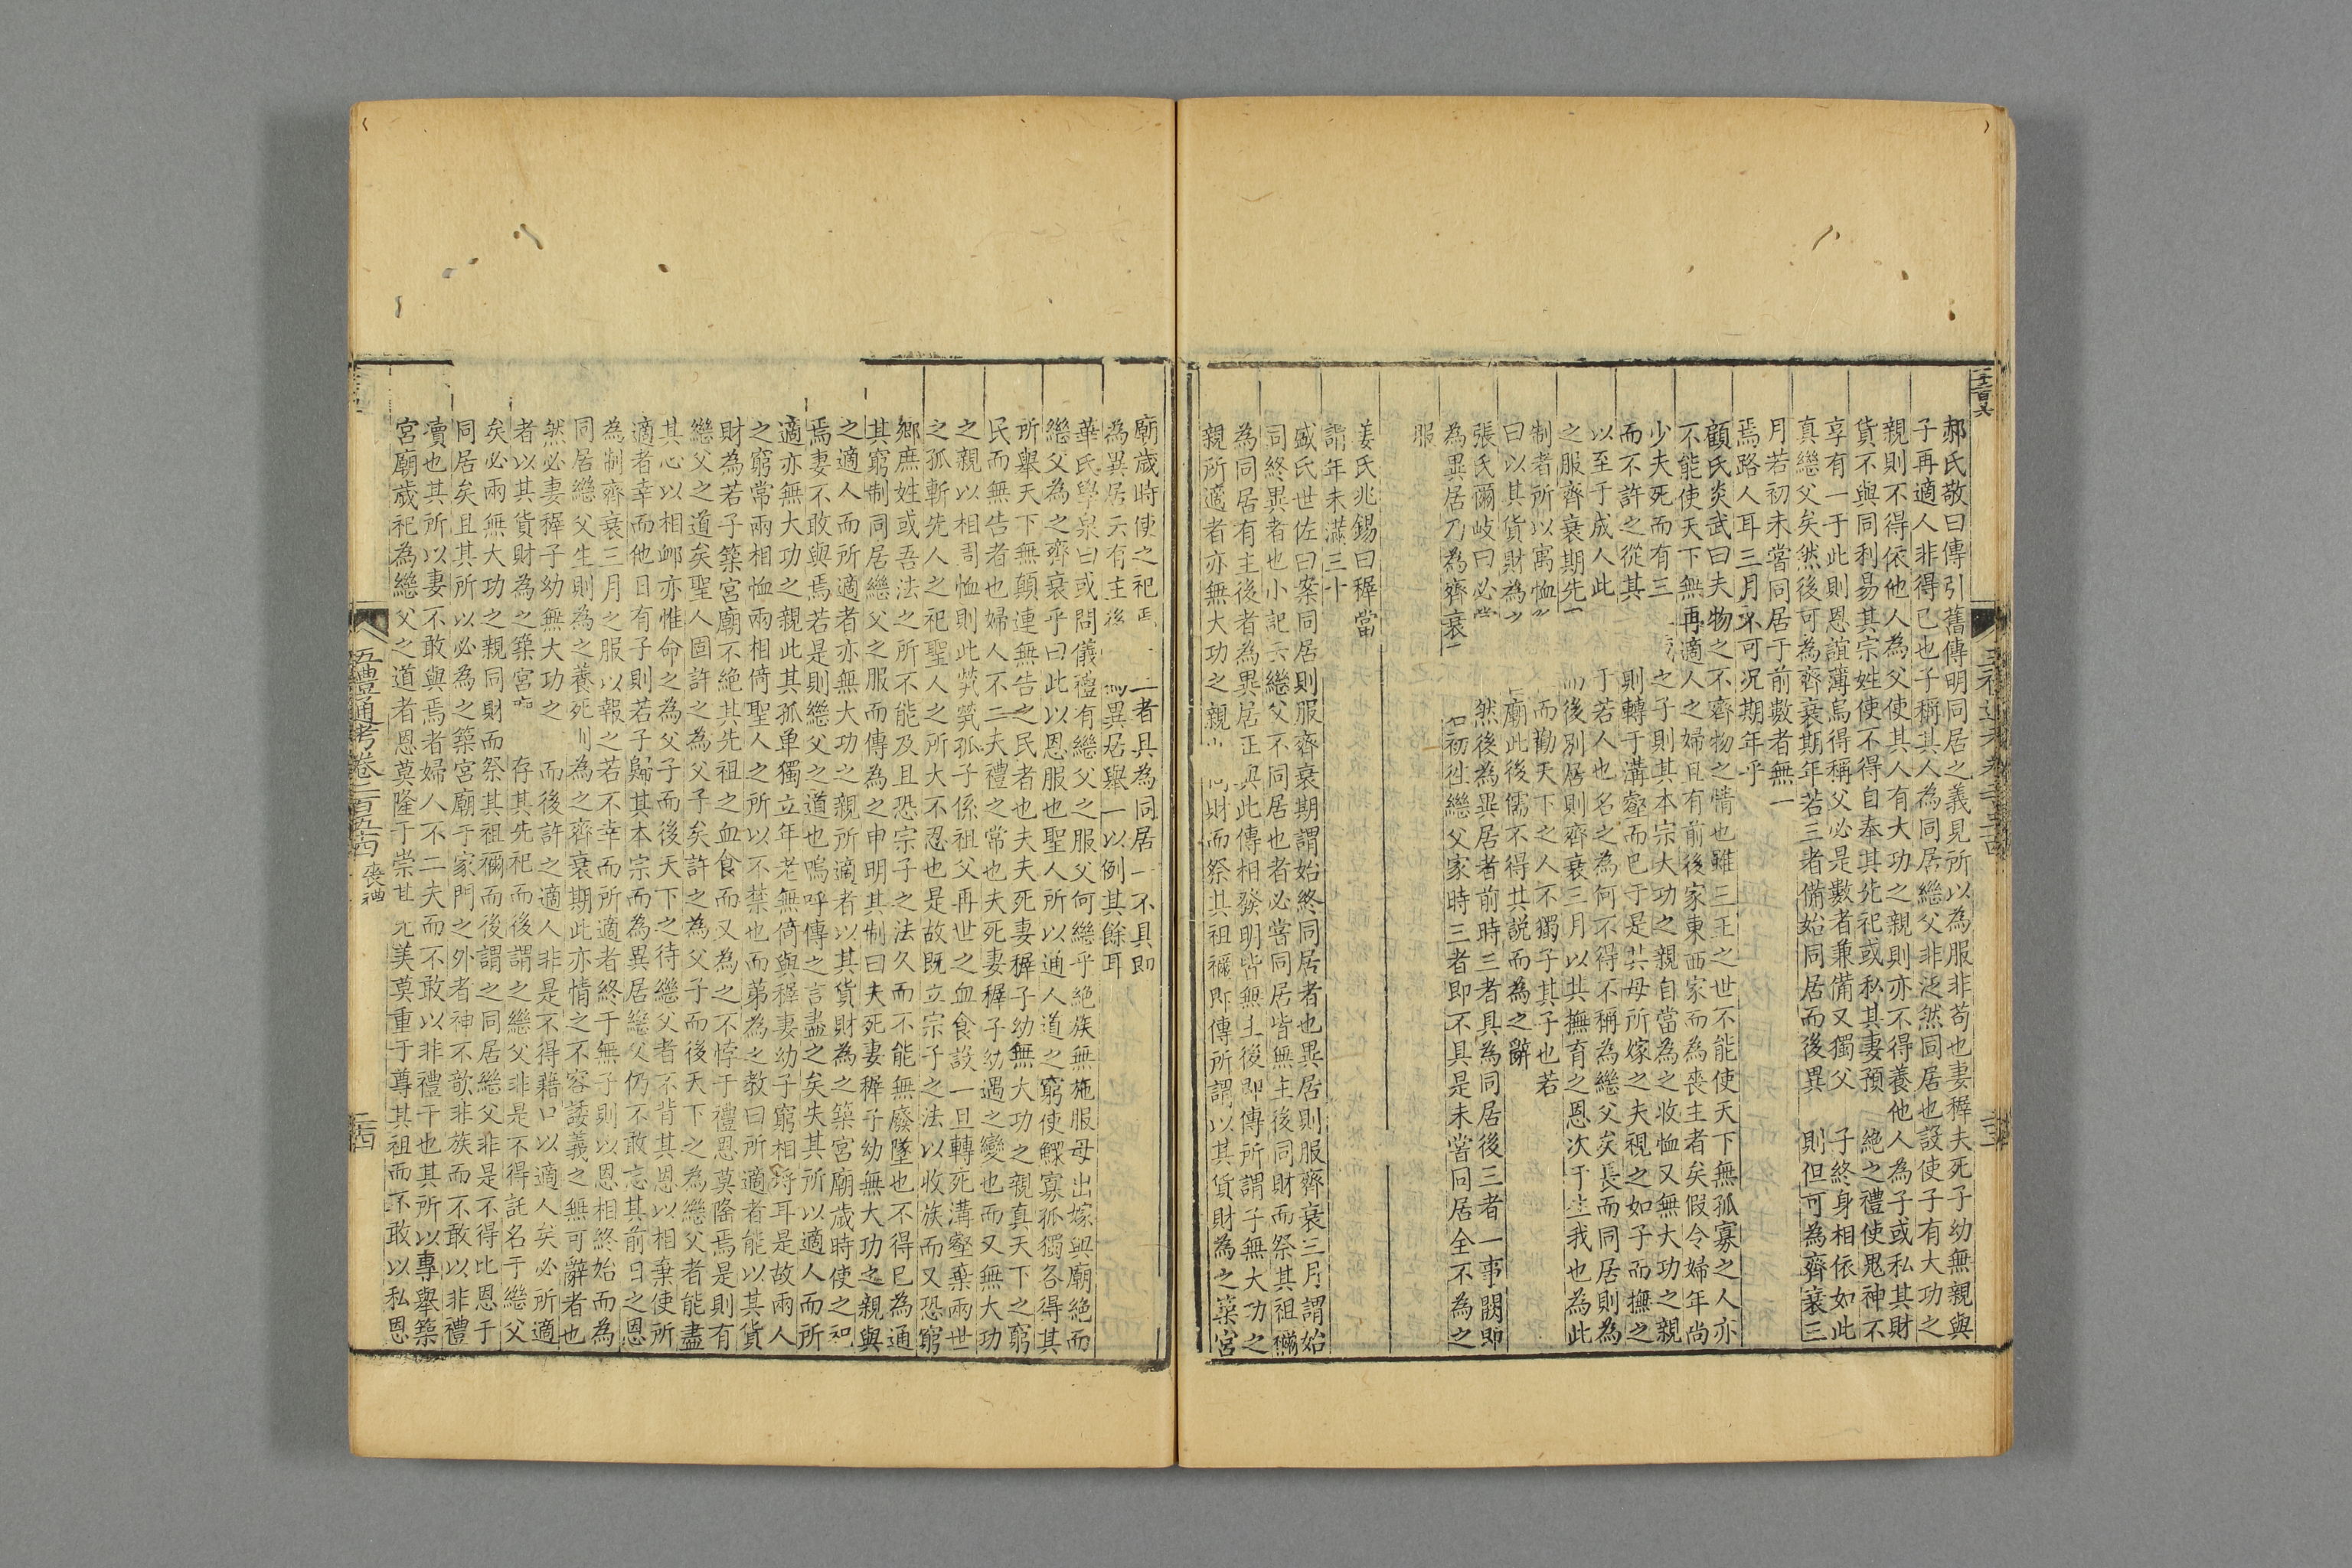 郝氏敬曰傳引舊傳明同居之義見所以為服非苟也妻穉夫死子幼無親與
子再適人非得已也子稱其人為同居繼父非泛然同居也設使子有大功之
親則不得依他人為父使其人有大功之親則亦不得養他人為子或私其財
貨不與同利易其宗姓使不得自奉其先祀或私其妻預絶之禮使鬼神不
享有一于此則恩誼薄烏得稱父必是數者兼備又獨父子終身相依如此
真繼父矣然後可為齊衰期年若三者備始同居而後異則但可為齊衰三
月若初未嘗同居于前數者無一
焉路人耳三月亦不可況期年乎
顧氏炎武曰夫物之不齊物之情也雖三王之世不能使天下無孤寡之人亦
不能使天下無再適人之婦且有前後家東西家而為喪主者矣假令婦年尚
少夫死而有三之子則其本宗大功之親自當為之收恤又無大功之親
而不許之從其則轉于溝壑而已于是其母所嫁之夫視之如子而撫之
以至于成人此子若人也名之為何不得不稱為繼父矣長而同居則為
之服齊衰期先而後別居則齊衰三月以其撫育之恩次于生我也為此
制者所以寓恤而勸天下之人不獨子其子也若
曰以其貨財為之廟此後儒不得其說而為之辭
張氏爾岐曰必然後為異居者前時三者具為同居後三者一事闕即
為異居乃為齊衰初往繼父家時三者即不具是未嘗同居全不為之
服
姜氏兆錫曰穉當
謂年未滿三十
盛氏世佐曰案同居則服齊衰期謂始終同居者也異居則服齊衰三月謂始
同終異者也小記云繼父不同居也者必嘗同居皆無主後同財而祭其祖禰
為同居有主後者為異居正與此傳相發明皆無主後即傳所謂子無大功之
親所適者亦無大功之親同財而祭其祖禰即傳所謂以其貨財為之築宮
廟歲時使之祀焉者具為同居一不具即
為異居云有主後為異居舉一以例其餘耳
華氏學泉曰或問儀禮有繼父之服父何繼乎絶族無施服母出嫁與廟絶而
繼父為之齊衰乎曰此以恩服也聖人所以通人道之窮使鰥寡孤獨各得其
所舉天下無顛連無告之民者也夫夫死妻穉子幼無大功之親真天下之窮
民而無告者也婦人不二夫禮之常也夫死妻穉子幼遇之變也而又無大功
之親以相周恤則此煢煢孤子係祖父再世之血食設一旦轉死溝壑棄兩世
之孤斬先人之祀聖人之所大不忍也是故既立宗子之法以收族而又恐窮
鄉庶姓或吾法之所不能及且恐宗子之法久而不能無廢墜也不得已為通
其窮制同居繼父之服而傳為之申明其制曰夫死妻穉子幼無大功之親與
之適人而所適者亦無大功之親所適者以其貨財為之築宮廟歲時使之祀
焉妻不敢與焉若是則繼父之道也嗚呼傳之言盡之矣夫其所以適人而所
適亦無大功之親此其孤单獨立年老無倚與穉妻幼子窮相將耳是故兩人
之窮常兩相恤兩相倚聖人之所以不禁也而弟為之教曰所適者能以其貨
財為若子築宮廟不絶其先祖之血食而又為之不悖于禮恩莫隆焉是則有
繼父之道矣聖人固許之為父子矣許之為父子而後天下之為繼父者能盡
其心以相卹亦惟命之為父子而後天下之待繼父者不背其恩以相棄使所
適者幸而他日有子則若子歸其本宗而為異居繼父仍不敢忘其前日之恩
為制齊衰三月之服以報之若不幸而所適者終于無子則以恩相終始而為
同居繼父生則為之養死則為之齊衰期此亦情之不容諉義之無可辭者也
然必妻穉子幼無大功之而後許之適人非是不得藉口以適人矣必所適
者以其貨財為之築宮存其先祀而後謂之繼父非是不得託名于繼父
矣必兩無大功之親同財而祭其祖禰而後謂之同居繼父非是不得比恩于
同居矣且其所以必為之築宮廟于家門之外者神不歆非族而不敢以非禮
凟也其所以妻不敢與焉者婦人不二夫而不敢以非禮干也其所以專舉築
宮廟歲祀為繼父之道者恩莫隆于崇其先美莫重于尊其祖而不敢以私恩
五禮通考卷二百五十四 喪禮
二十四